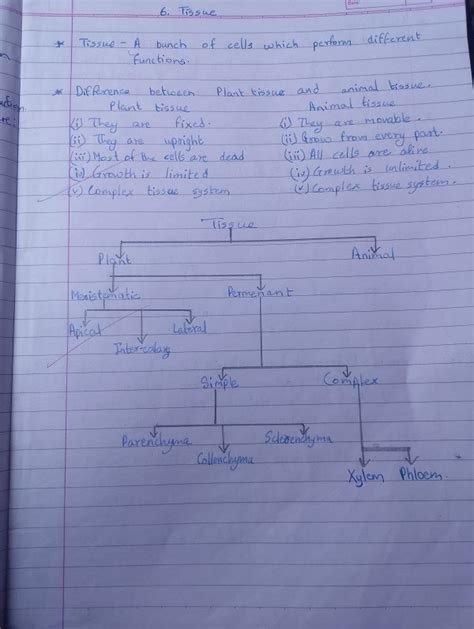 6. Tissue
* Tissue - A bunch of cells which perform different
functions.
* Difference between Plant tissue and animal tissue.
Plant tissue Animal tissue
(i) They are fixed. (i) They are movable.
(ii) They are upright (ii) Grow from every part.
(iii) Most of the cells are dead (iii) All cells are alive
(iv) Growth is limited (iv) Growth is unlimited.
(v) Complex tissue system (v) Complex tissue system.
Tissue
Plant Animal
Meristematic Permenant
Apical Lateral
Inter-calary
Simple Complex
Parenchyma Sclerenchyma
Collenchyma
Xylem Phloem.